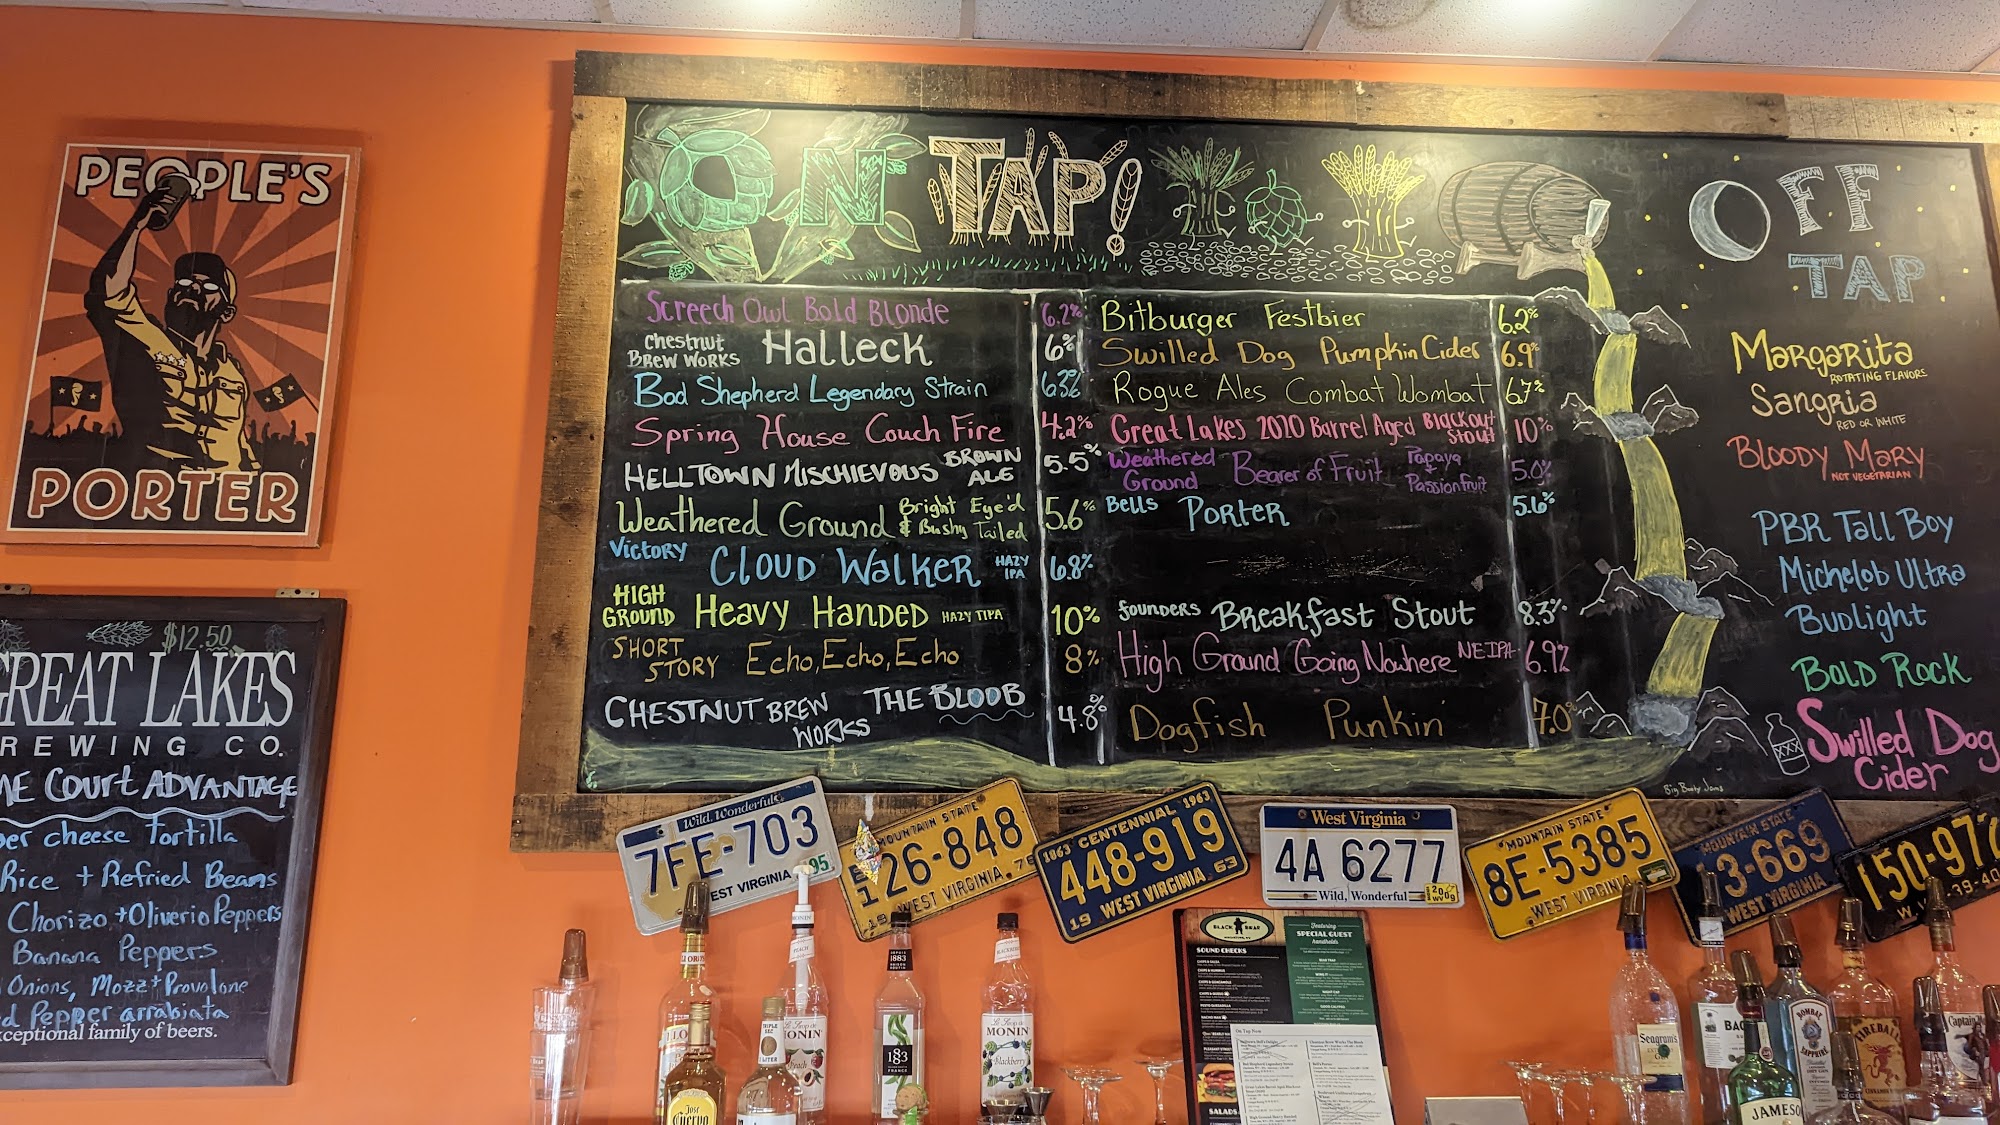 PEOPLE'S
PORTER
$12.50
GREAT LAKES
REWING CO.
ME COURT ADVANTAGE
per cheese Tortilla
Rice + Refried Beans
Chorizo + Oliverio Peppers
Banana Peppers
Onions, Mozz + Provolone
d Pepper arrabiata
ceptional family of beers.
ON TAP!
Screech Owl Bold Blonde 6.2%
Chestnut Brew Works Halleck 6%
Bad Shepherd Legendary Strain 6.3%
Spring House Couch Fire 4.2%
HELLTOWN MISCHIEVOUS BROWN ALE 5.5%
Weathered Ground Bright Eye'd & Bushy Tailed 5.6%
Victory Cloud Walker HAZY IPA 6.8%
HIGH GROUND Heavy Handed HAZY TIPA 10%
SHORT STORY Echo, Echo, Echo 8%
CHESTNUT BREW WORKS THE BLOOB 4.8%
Bitburger Festbier 6.2%
Swilled Dog Pumpkin Cider 6.9%
Rogue Ales Combat Wombat 6.7%
Great Lakes 2020 Barrel Aged Blackout Stout 10%
Weathered Ground Bearer of Fruit Papaya + Passionfruit 5.0%
Bells Porter 5.6%
founders Breakfast Stout 8.3%
High Ground Going Nowhere NEIPA 6.9%
Dogfish Punkin 7.0%
OFF
TAP
Margarita
ROTATING FLAVORS
Sangria
RED OR WHITE
Bloody Mary
NOT VEGETARIAN
PBR Tall Boy
Michelob Ultra
Budlight
Bold Rock
Swilled Dog
Cider
XXX
Big Booty Jams
Wild, Wonderful
7FE-703
95
WEST VIRGINIA
MOUNTAIN STATE
26-848
WEST VIRGINIA. 76
1863 CENTENNIAL 1963
448-919
19 WEST VIRGINIA 63
West Virginia
4A 6277
Wild, Wonderful
MOUNTAIN STATE
8E-5385
WEST VIRGINIA
MOUNTAIN STATE
3-669
WEST VIRGINIA
150-972
BLACK BEAR
SOUND CHECKS
Featuring
SPECIAL GUEST
handhelds
On Tap Now
SALADS
Jose
Cuervo
TRIPLE
SEC
MONIN
Peach
1883
1883
FRANCE
MONIN
Blackberry
Seagram's
BAC
JAMESO
BOMBAY
SAPPHIRE
FIREBALL
Captain